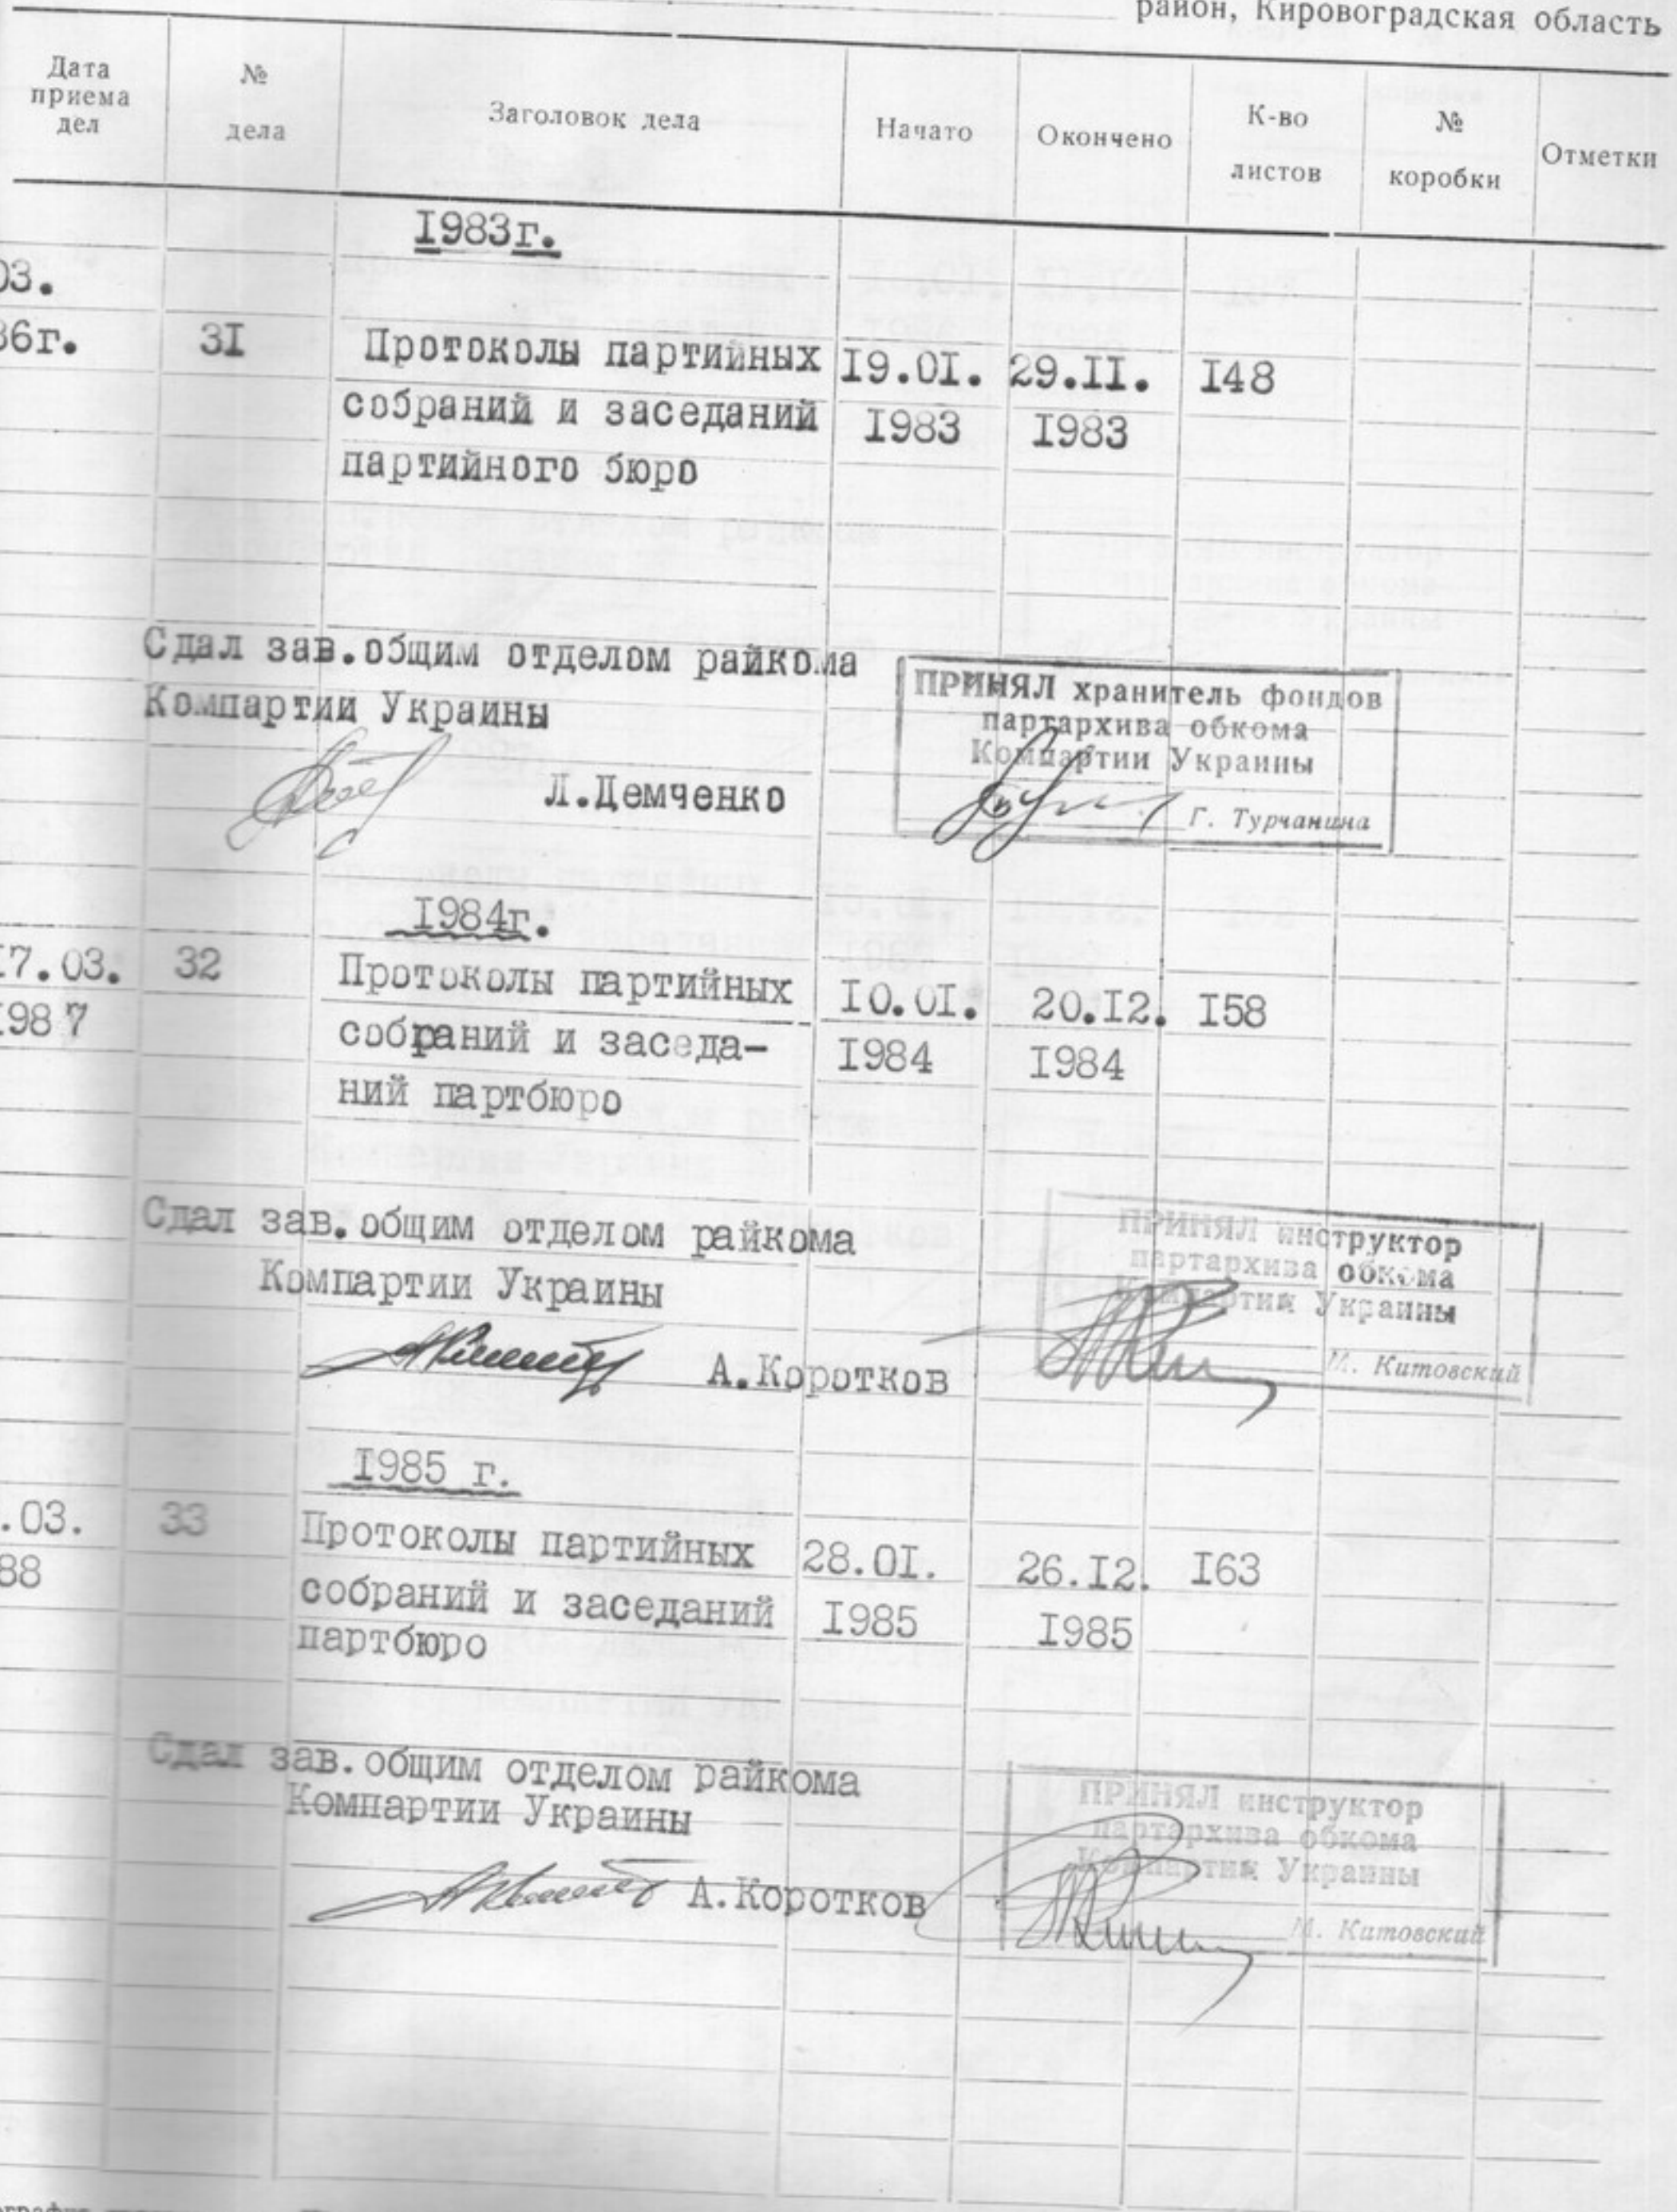 район, Кировоградская область
Дата приема дел № дела Заголовок дела Начато Окончено К-во листов № коробки Отметки
I983г.
03.
86г. 3I Протоколы партийных I9.0I. 29.II. I48
собраний и заседаний I983 I983
партийного бюро
Сдал зав.общим отделом райкома
Компартии Украины
Л.Демченко
ПРИНЯЛ хранитель фондов
партархива обкома
Компартии Украины
Г. Турчанина
I984г.
I7.03. 32 Протоколы партийных I0.0I. 20.I2. I58
I987 собраний и заседа- I984 I984
ний партбюро
Сдал зав.общим отделом райкома
Компартии Украины
А.Коротков
ПРИНЯЛ инструктор
партархива обкома
Компартии Украины
М. Китовский
I985 г.
.03. 33 Протоколы партийных 28.0I. 26.I2. I63
88 собраний и заседаний I985 I985
партбюро
Сдал зав.общим отделом райкома
Компартии Украины
А.Коротков
ПРИНЯЛ инструктор
партархива обкома
Компартии Украины
М. Китовский